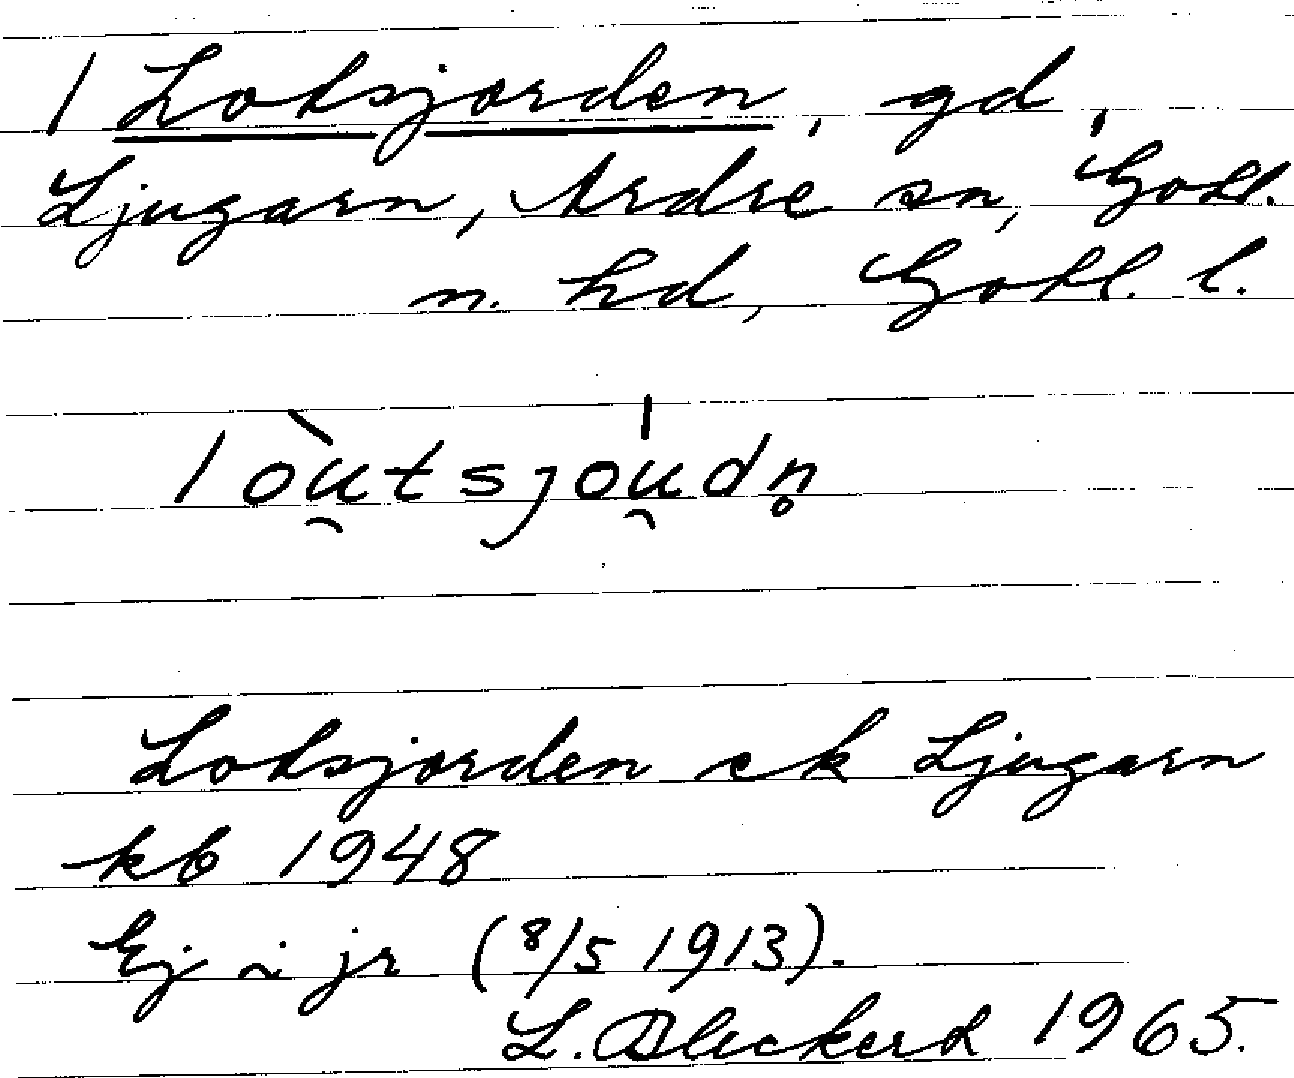 1 Lotsjorden, gd,
Ljugarn, Ardre sn, Gotl.
n. hd, Gotl. l.
lòu̯tsjóu̯dn̥
Lotsjorden ek Ljugarn
kb 1948
Ej i jr (8/5 1913).
L. Bleckert 1965.